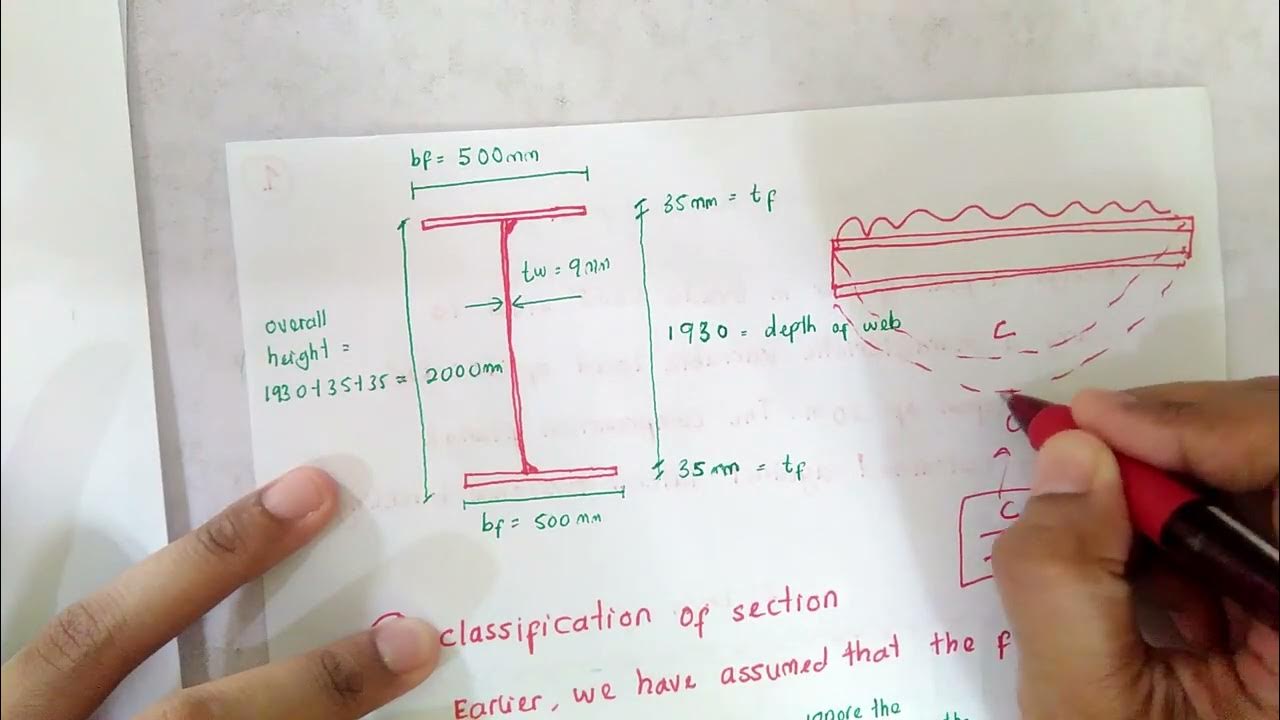 bf = 500mm
35mm = tf
tw = 9mm
overall
height =
1930+35+35 = 2000mm
1930 = depth of web
C
35mm = tf
bf = 500mm
C
classification of section
Earlier, we have assumed that the f
ignore the